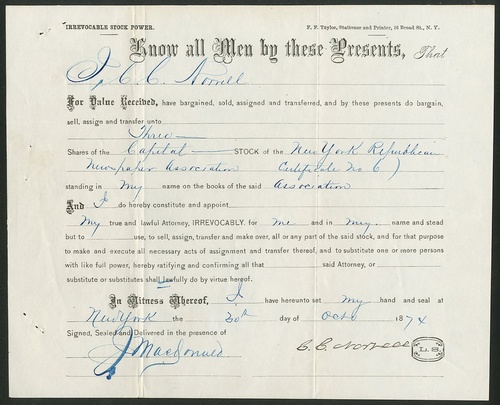 IRREVOCABLE STOCK POWER.
F. F. Taylor, Stationer and Printer, 16 Broad St., N. Y.
Know all Men by these Presents, That
I, C. C. Norvell
For Value Received, have bargained, sold, assigned and transferred, and by these presents do bargain,
sell, assign and transfer unto
Three
Shares of the Capital STOCK of the New York Republican
Newspaper Association Certificate No 6)
standing in my name on the books of the said Association
And I do hereby constitute and appoint
my true and lawful Attorney, IRREVOCABLY, for me and in my name and stead
but to use, to sell, assign, transfer and make over, all or any part of the said stock, and for that purpose
to make and execute all necessary acts of assignment and transfer thereof, and to substitute one or more persons
with like full power, hereby ratifying and confirming all that said Attorney, or
substitute or substitutes shall lawfully do by virtue hereof.
In Witness Whereof, I have hereunto set my hand and seal at
New York the 20th day of Octo 1874
Signed, Sealed and Delivered in the presence of
J MacDonald
C. C. Norvell L.S.